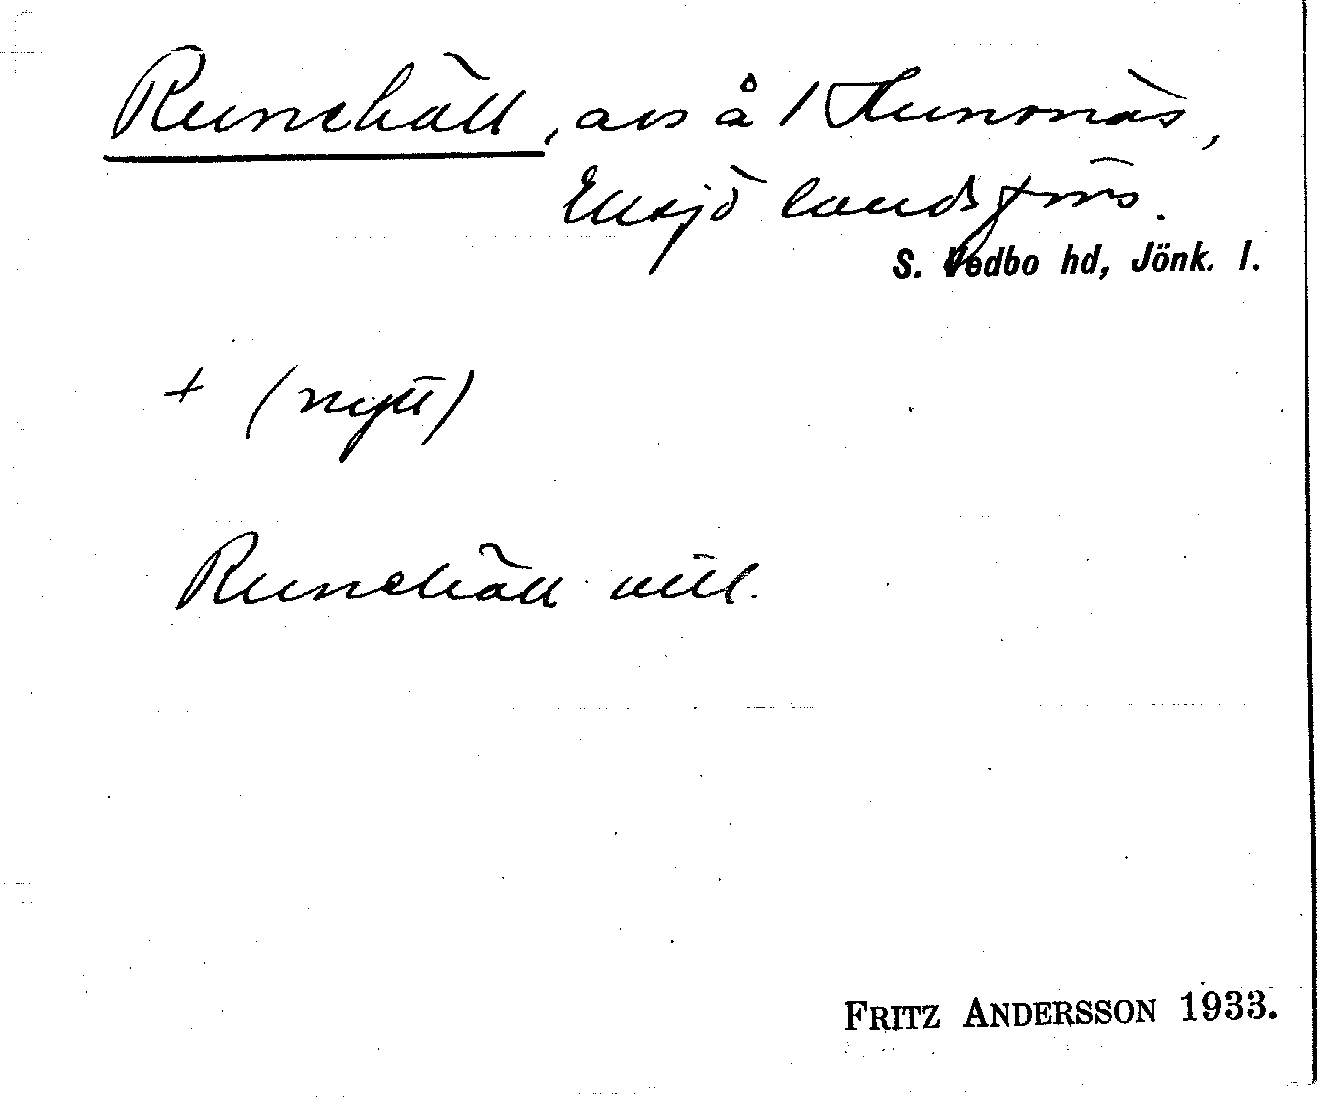 Runehäll, avs å 1 Hunsnäs,
Eksjö landsförs.
S. Vedbo hd, Jönk. l.
+ (nytt)
Runehäll vill.
FRITZ ANDERSSON 1933.